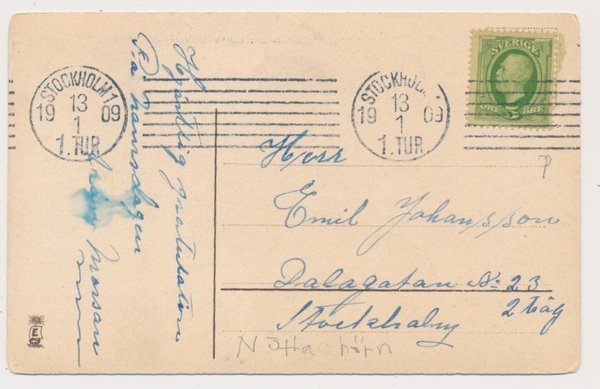 STOCKHOLM 1
13
19 09
1
1. TUR
STOCKHOLM 1
13
19 09
1
1. TUR
SVERIGE
ÖRE 5 ÖRE
Hjärtlig gratulation
På namnsdagen
från Morsan
Herr
Emil Johansson
Dalagatan No 23
2 tåg
Stockholm